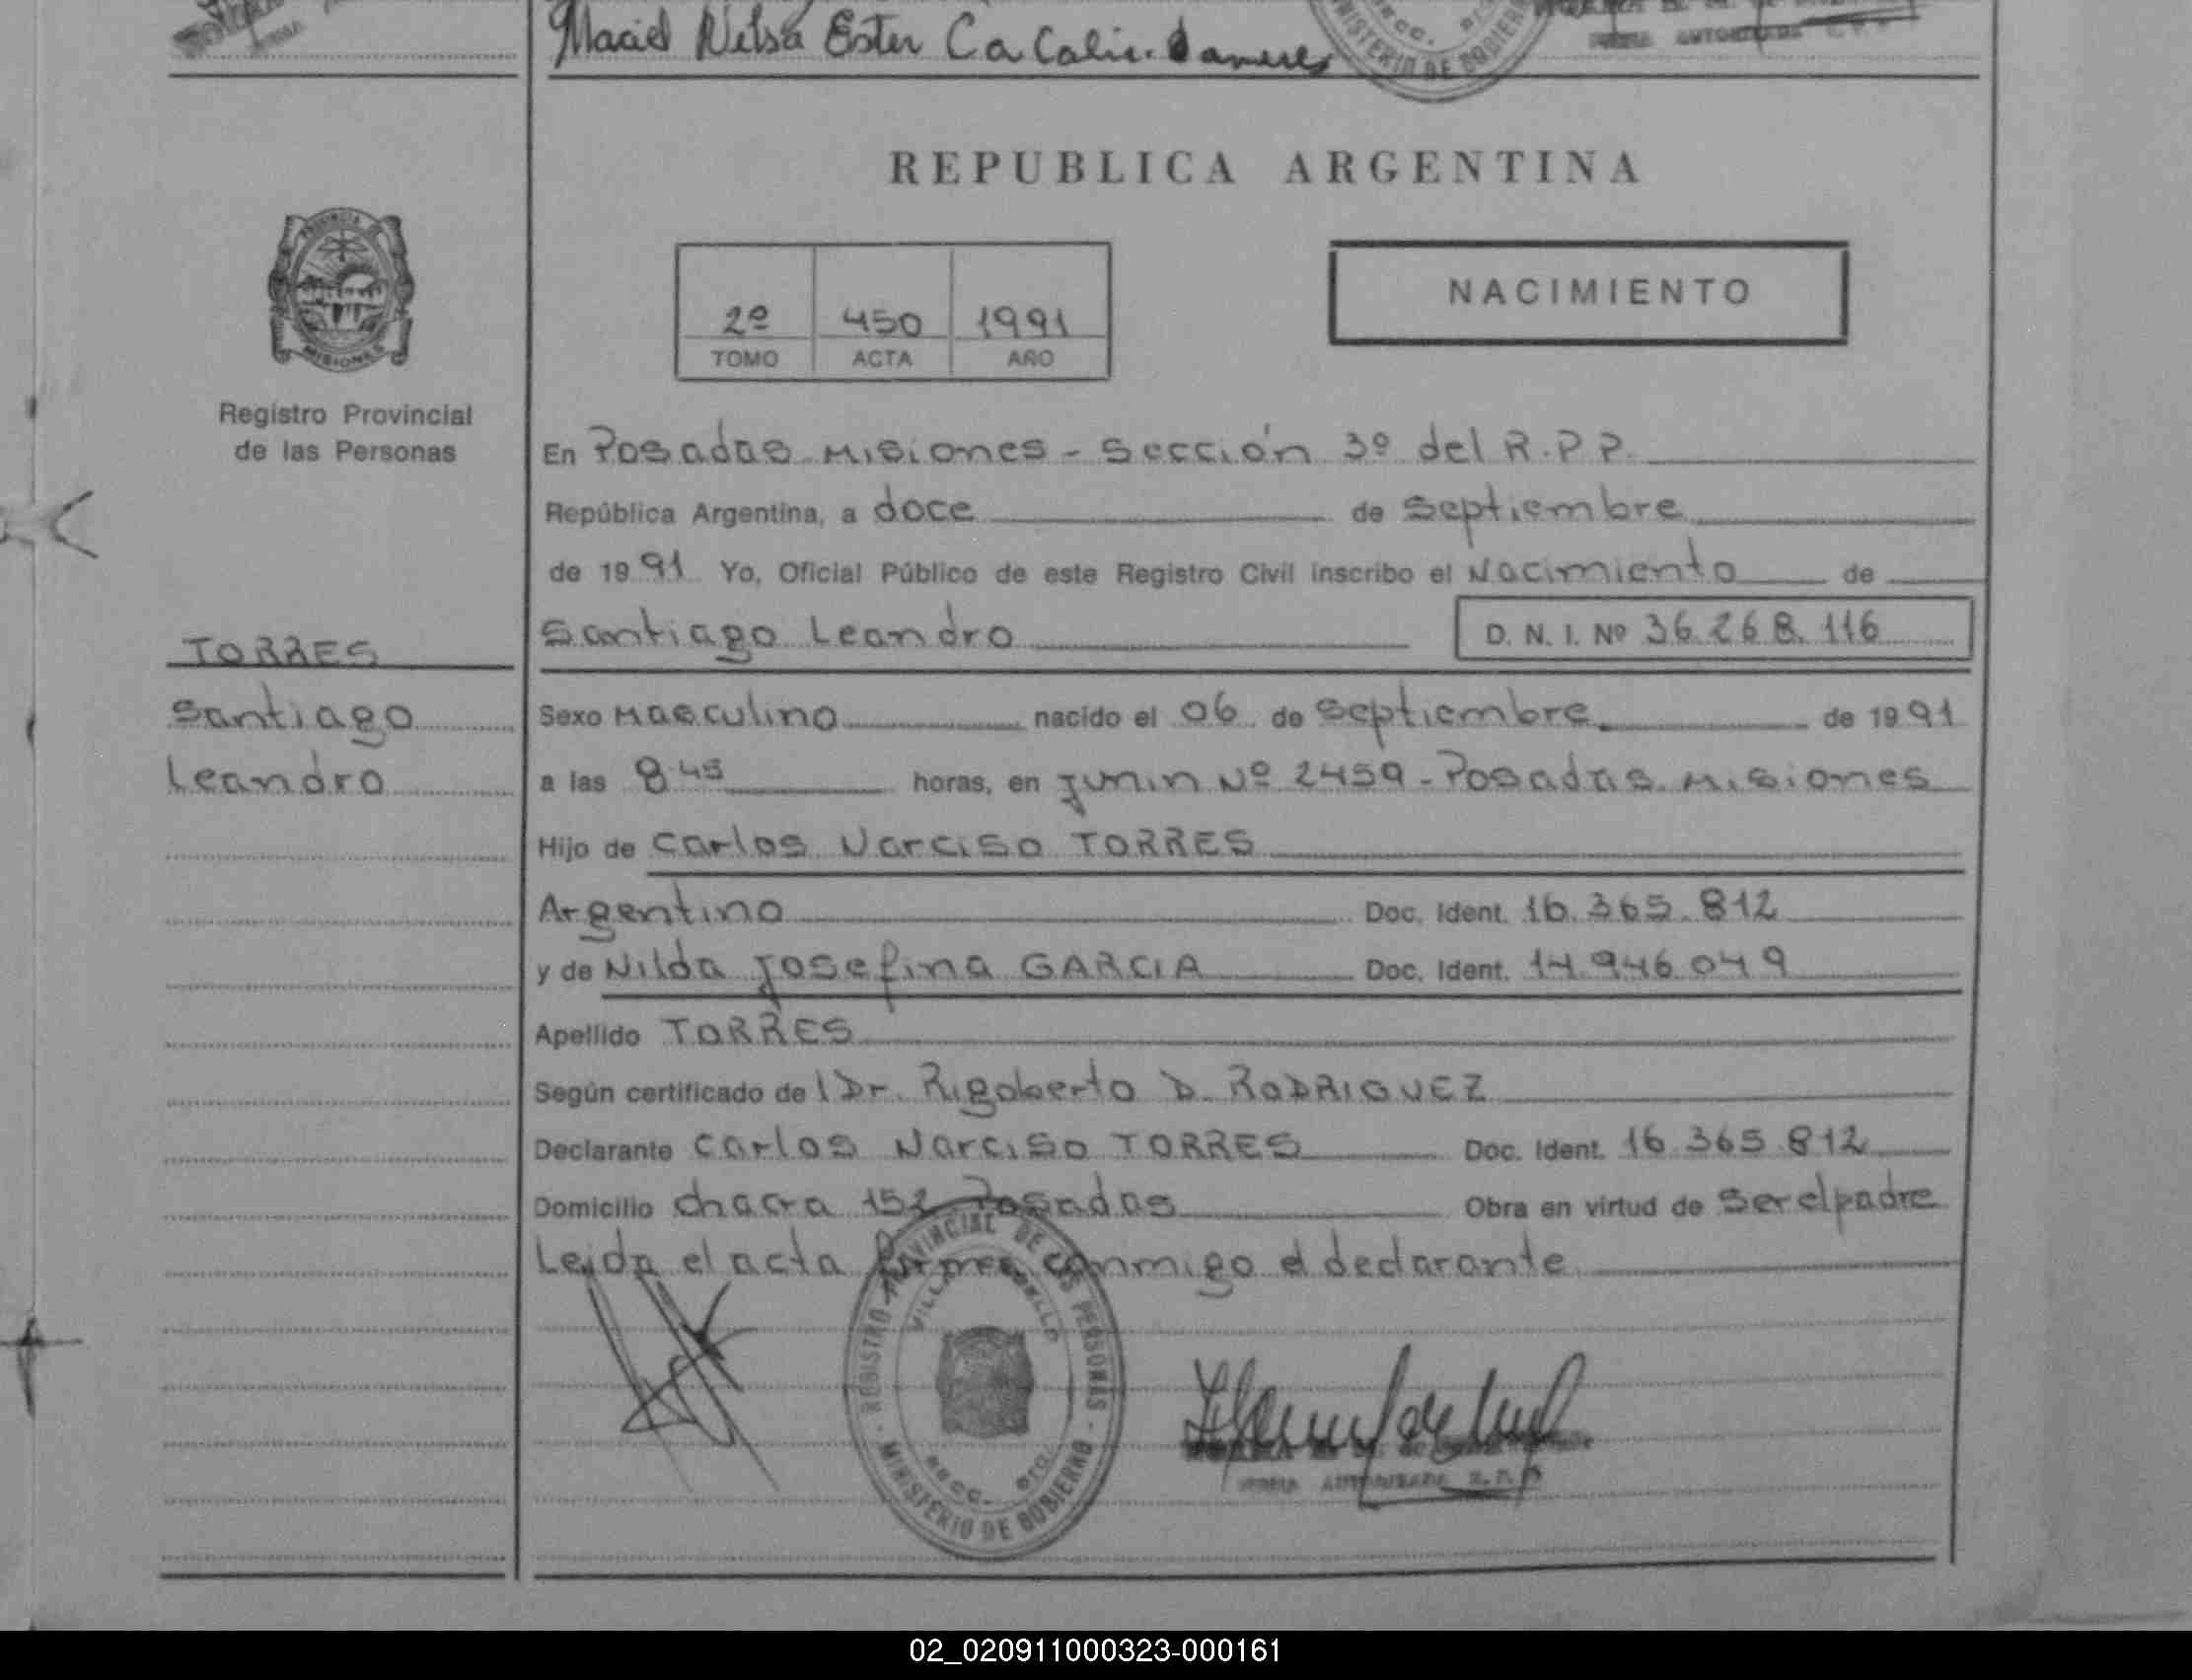 Maciel Nelsa Ester Ca
MINISTERIO DE GOBIERNO
REPUBLICA ARGENTINA
PROVINCIA DE
MISIONES
2º 450 1991
TOMO ACTA AÑO
NACIMIENTO
Registro Provincial
de las Personas
En Posadas Misiones - Sección 3º del R.P.P.
República Argentina, a doce de Septiembre
de 1991 Yo, Oficial Público de este Registro Civil inscribo el Nacimiento de
Santiago Leandro D. N. I. Nº 36.268.116
TORRES
Santiago
Leandro
Sexo Masculino nacido el 06 de Septiembre de 1991
a las 8.45 horas, en Junin Nº 2459 - Posadas Misiones
Hijo de Carlos Narciso TORRES
Argentino Doc. Ident. 16.365.812
y de Nilda Josefina GARCIA Doc. Ident. 14.946.049
Apellido TORRES
Según certificado de l Dr. Rigoberto D. RODRIGUEZ
Declarante Carlos Narciso TORRES Doc. Ident. 16.365.812
Domicilio chacra 152 Posadas Obra en virtud de ser el padre
Leida el acta firma conmigo el declarante
REGISTRO PROVINCIAL DE LAS PERSONAS
SECC. 3ra.
MINISTERIO DE GOBIERNO
FIRMA AUTORIZADA R.P.P
02_020911000323-000161